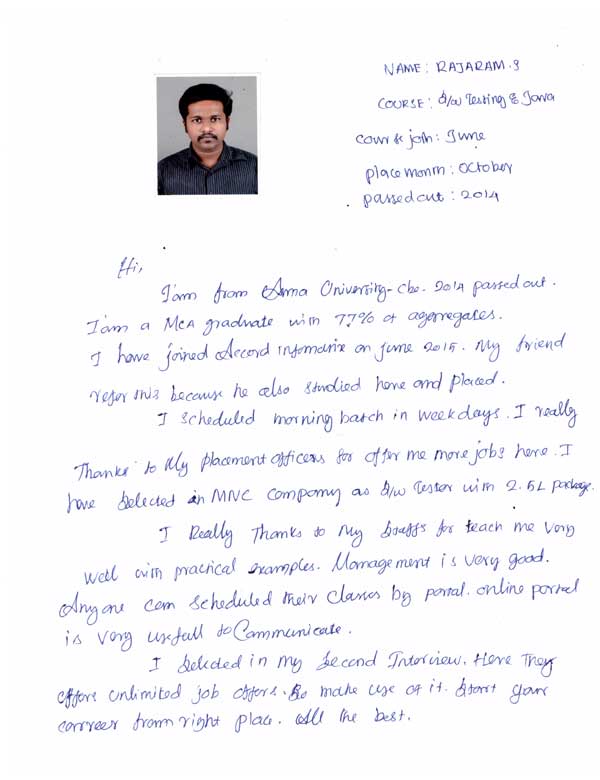 NAME: RAJARAM.S
COURSE: S/w Testing & Java
Course join: June
place month: October
passed out: 2014
Hi,
I'am from Anna University-Cbe. 2014 passed out.
I'am a MCA graduate with 77% of aggregates.
I have joined Accord Infomatrix on June 2015. My friend
refer this because he also studied here and placed.
I scheduled morning batch in weekdays. I really
Thanks to My placement officers for offer me more jobs here. I
have Selected in MNC Company as S/w Tester with 2.5L package.
I Really Thanks to My Staffs for teach me very
well with practical examples. Management is very good.
Anyone can Scheduled their Classes by portal. online portal
is very usefull to Communicate.
I Selected in my Second Interview. Here They
offers unlimited job offers. So make use of it. Start your
carreer from right place. All the best.